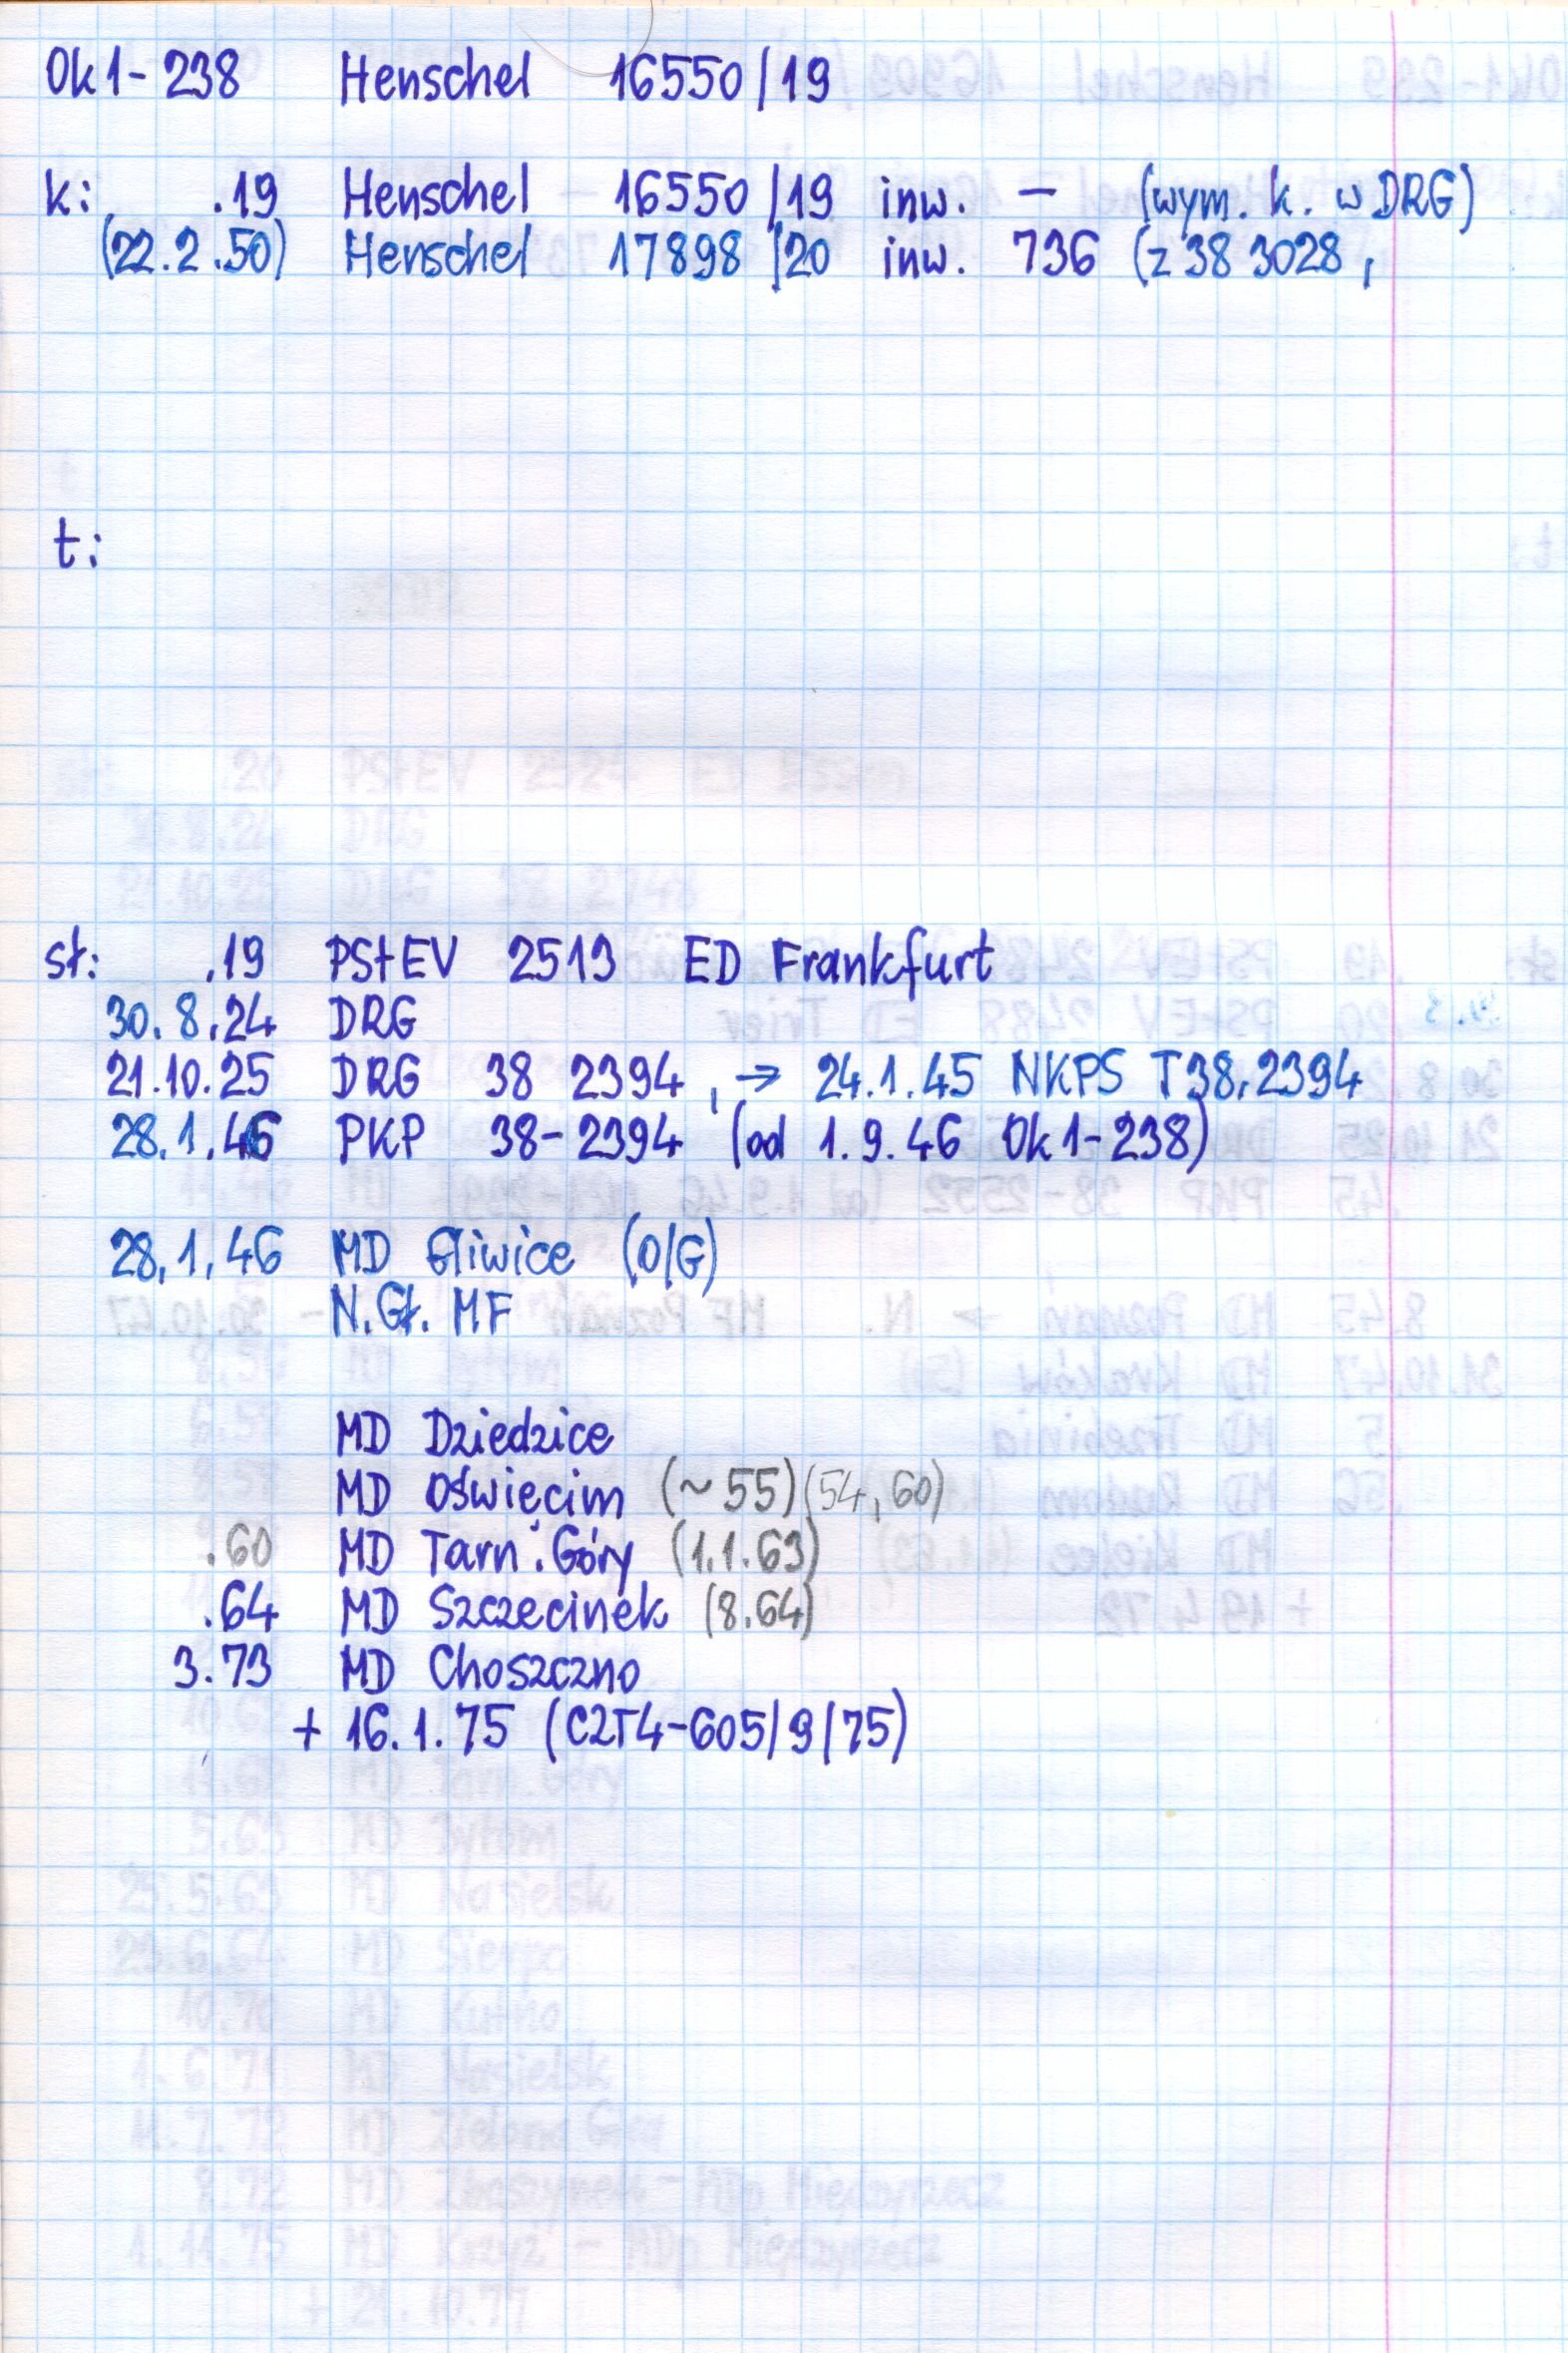 Ok1-238 Henschel 16550/19
k: .19 Henschel 16550/19 inw. — (wym. k. w DRG)
(22.2.50) Henschel 17898/20 inw. 736 (z 38 3028,
t:
sł: .19 PStEV 2513 ED Frankfurt
30.8.24 DRG
21.10.25 DRG 38 2394, → 24.1.45 NKPS T38.2394
28.1.46 PKP 38-2394 (od 1.9.46 Ok1-238)
28.1.46 MD Gliwice (O/G)
N.Gł. MF
MD Dziedzice
MD Oświęcim (~55) (54, 60)
.60 MD Tarn. Góry (1.1.63)
.64 MD Szczecinek (8.64)
3.73 MD Choszczno
+ 16.1.75 (C2T4-605/9/75)